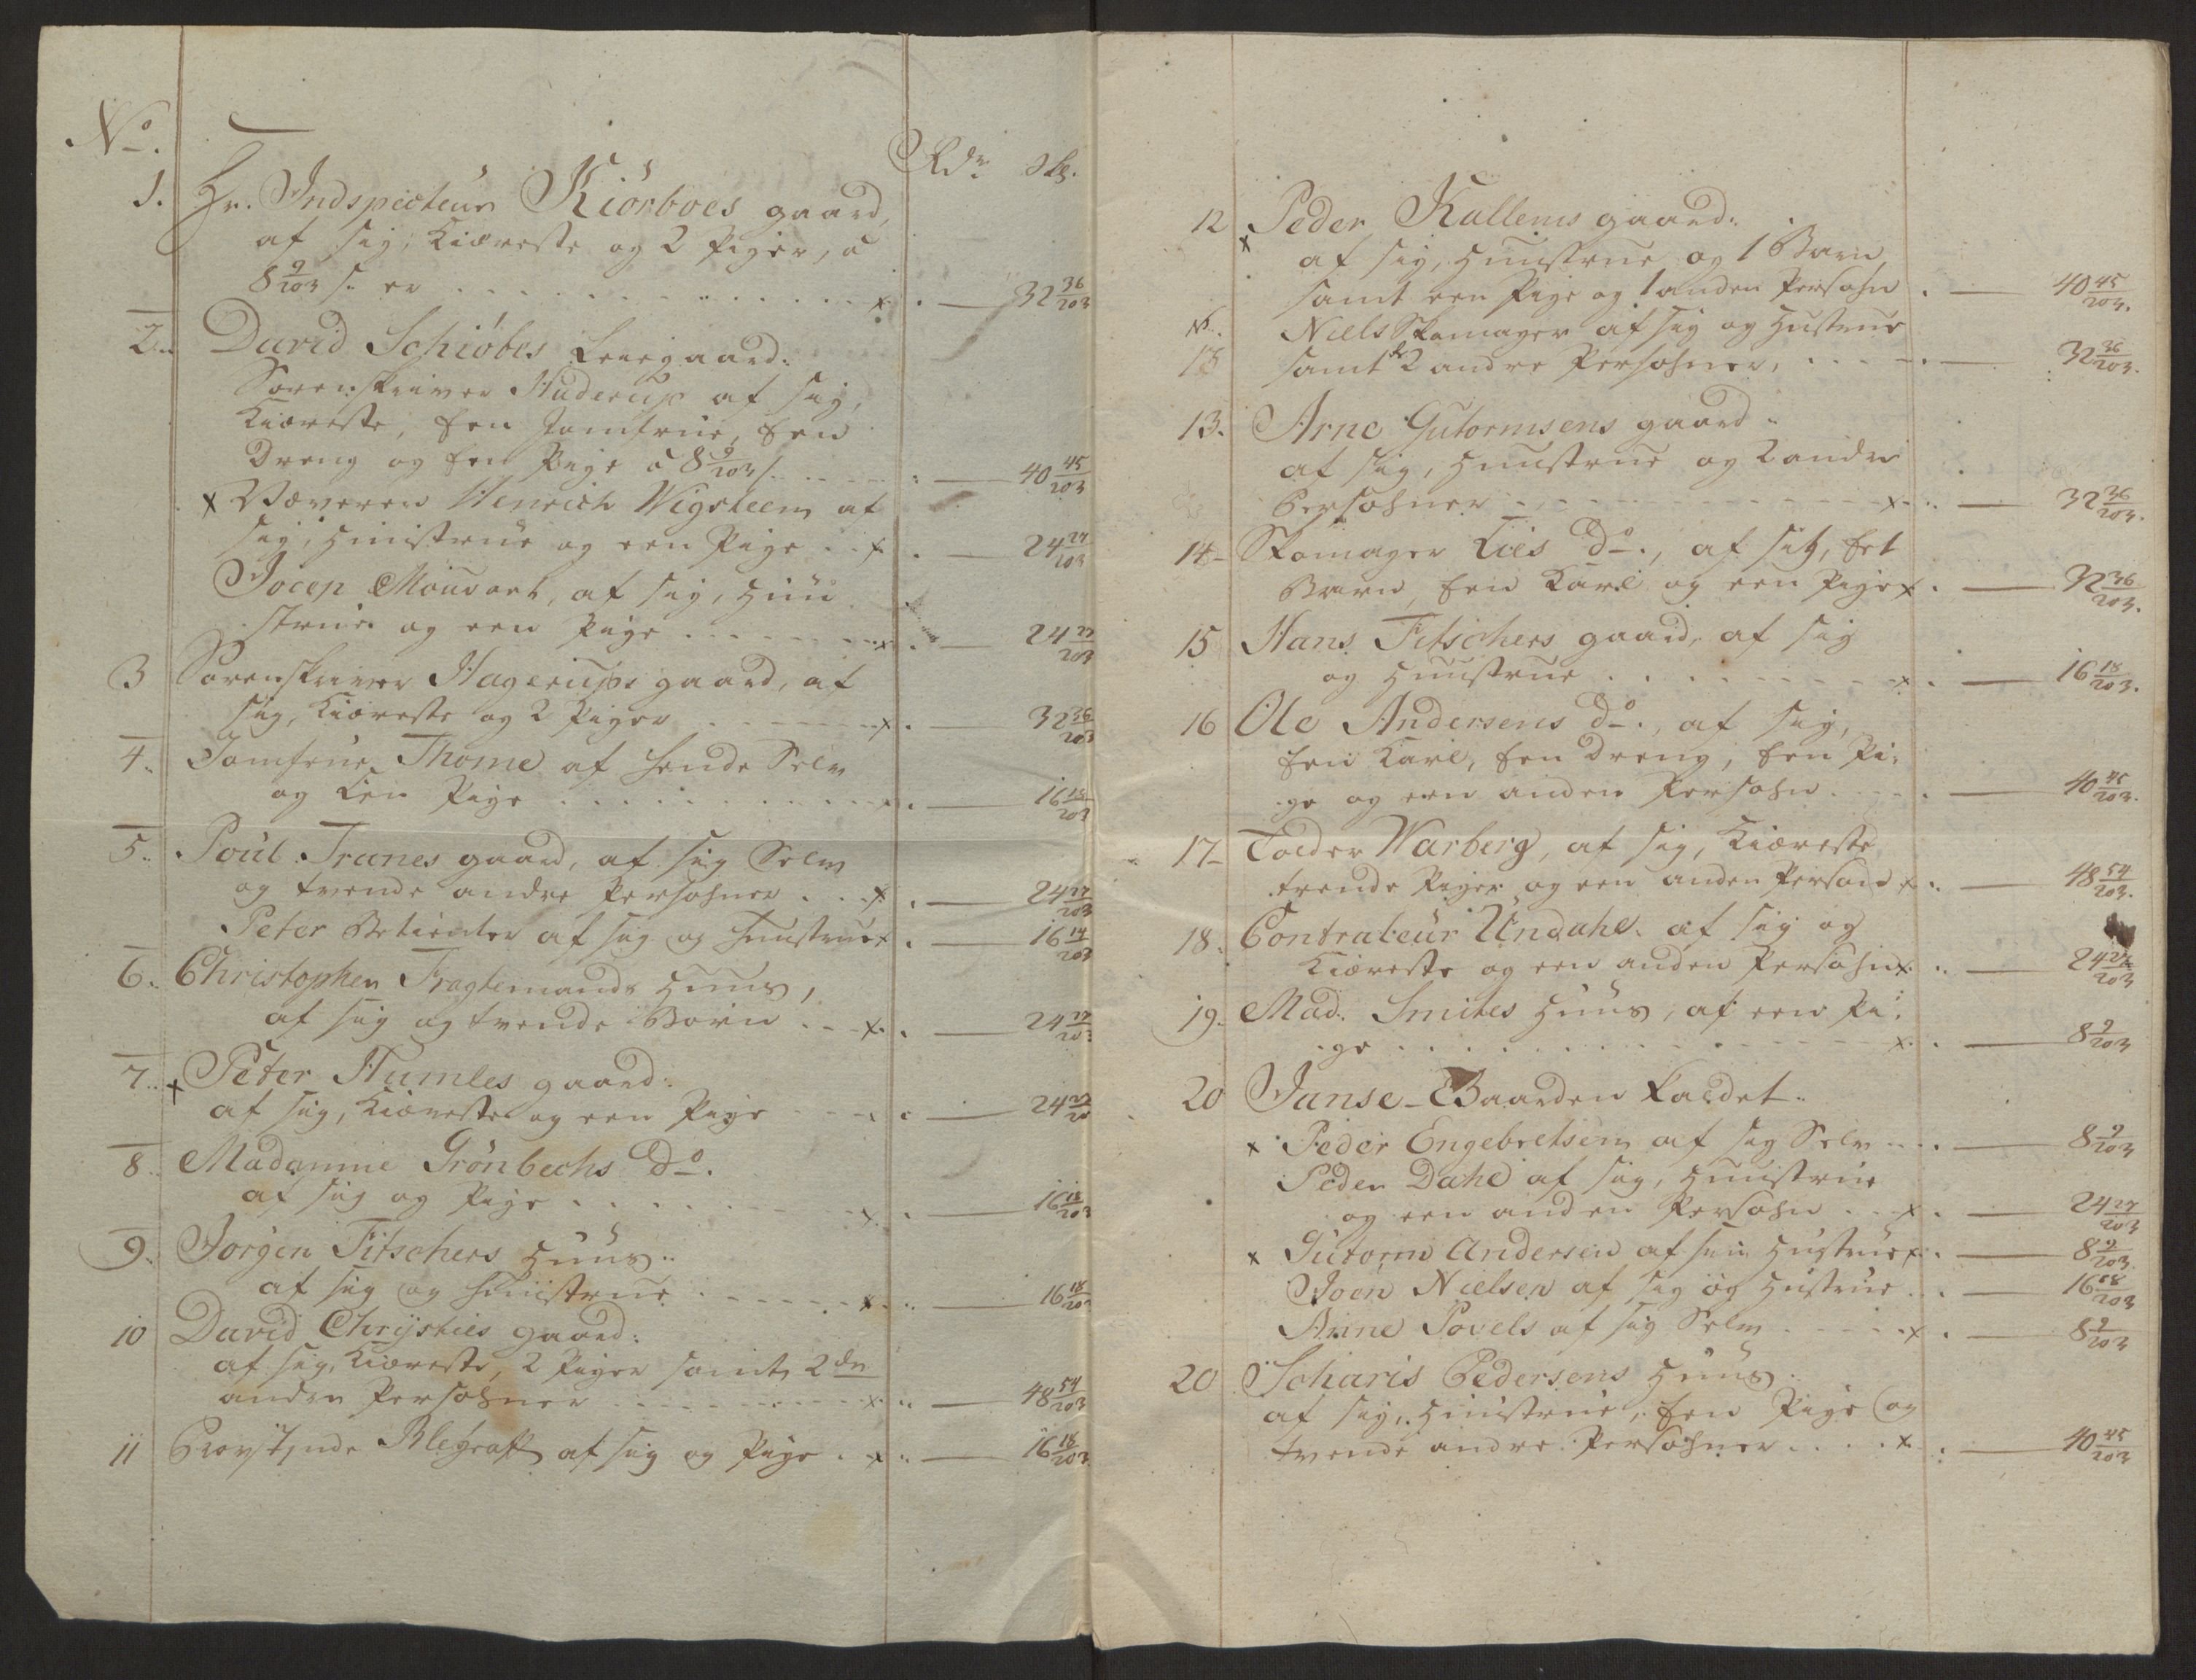 No.
Rdr. skl.
1. Hr. Indspecteur Kiörboes gaard,
af sig, Kiæreste og 2 Piger, a
8 9/203 s. er . . . x . — 32 36/203
2. David Schiöbes Leiegaard:
Sorenskriver Huderup af sig,
Kiæreste, Een Jomfrue, Een
Dreng og Een Pige a 8 9/203 s. . . — 40 45/203
x Væveren Henrich Wigsteen af
sig, Huustrue og een Pige . . x . — 24 27/203
Jocep Mouvart, af sig, Huu
strue og een Pige . . . x . — 24 27/203
3 Sorenskriver Hagerups gaard, af
sig, Kiæreste og 2 Piger . . . x . — 32 36/203
4. Jomfrue Thome af hende Selv
og Een Pige . . . . — 16 18/203
5. Poul Tranes gaard, af sig Selv
og tvende andre Persohner . . x . — 24 27/203
Peter Betienter af sig og Huustrue x . — 16 14/203
6. Christopher Fragtemands Huus,
af sig og tvende Börn . . x . — 24 27/203
7. x Peter Humles gaard:
af sig, Kiæreste og een Pige . . x . — 24 27/20
8. Madamme Grönbechs Do.
af sig og Pige . . . x . — 16 18/203
9. Jorgen Fitschers Huus.
af sig og Huustrue . . . x . — 16 18/20
10 David Chrysties gaard:
af sig, Kiæreste, 2 Piger samt 2de
andre Persohner . . . x . — 48 54/203
11 af sig og Pige . x . — 16 18/203
12 x Peder Kallems gaard:
af sig, Huustrue og 1 Barn
samt een Pige og 1 anden Persohn . — 40 45/203.
N. Niels Skomager af sig og Hustrue
13 samt 2 andre Persohner, . . . — 32 36/203.
13. Arne Gutormsens gaard.
af sig, Huustrue og 2 andre
Persohner . . . x . — 32 36/203.
14 Skomager Lies Do., af sig, Et
Barn, Een Karl og een Pige x . — 32 36/203.
15 Hans Fitschers gaard, af sig
og Huustrue . . . x . — 16 18/203.
16 Ole Andersens Do., af sig,
Een Karl, Een Dreng, Een Pi-
ge og een anden Persohn . . . — 40 45/203.
17 Tolder Warberg, af sig, Kiæreste
trende Piger og een anden Person x . — 48 54/203.
18. Contraleur Undahl. af sig og
Kiæreste og een anden Persohn x . — 24 27/203
19. Mad. Smites Huus, af een Pi-
ge . . . x . — 8 9/203
20 Janse-Gaarden kaldet.
x Peder Engebretsen af sig Selv . . — 8 9/203
Peder Dahl af sig, Huustrue
og een anden Persohn . . x . — 24 27/203
x Gutorm Andersen af sin Hustrue x . — 8 9/203.
Joen Nielsen af sig og Hustrue . . — 16 18/203
Anne Povels af sig Selv . . . x . — 8 9/203
20 Scharis Pedersens Huus.
af sig, Huustrue, Een Pige og
tvende andre Persohner . . . x . — 40 45/203